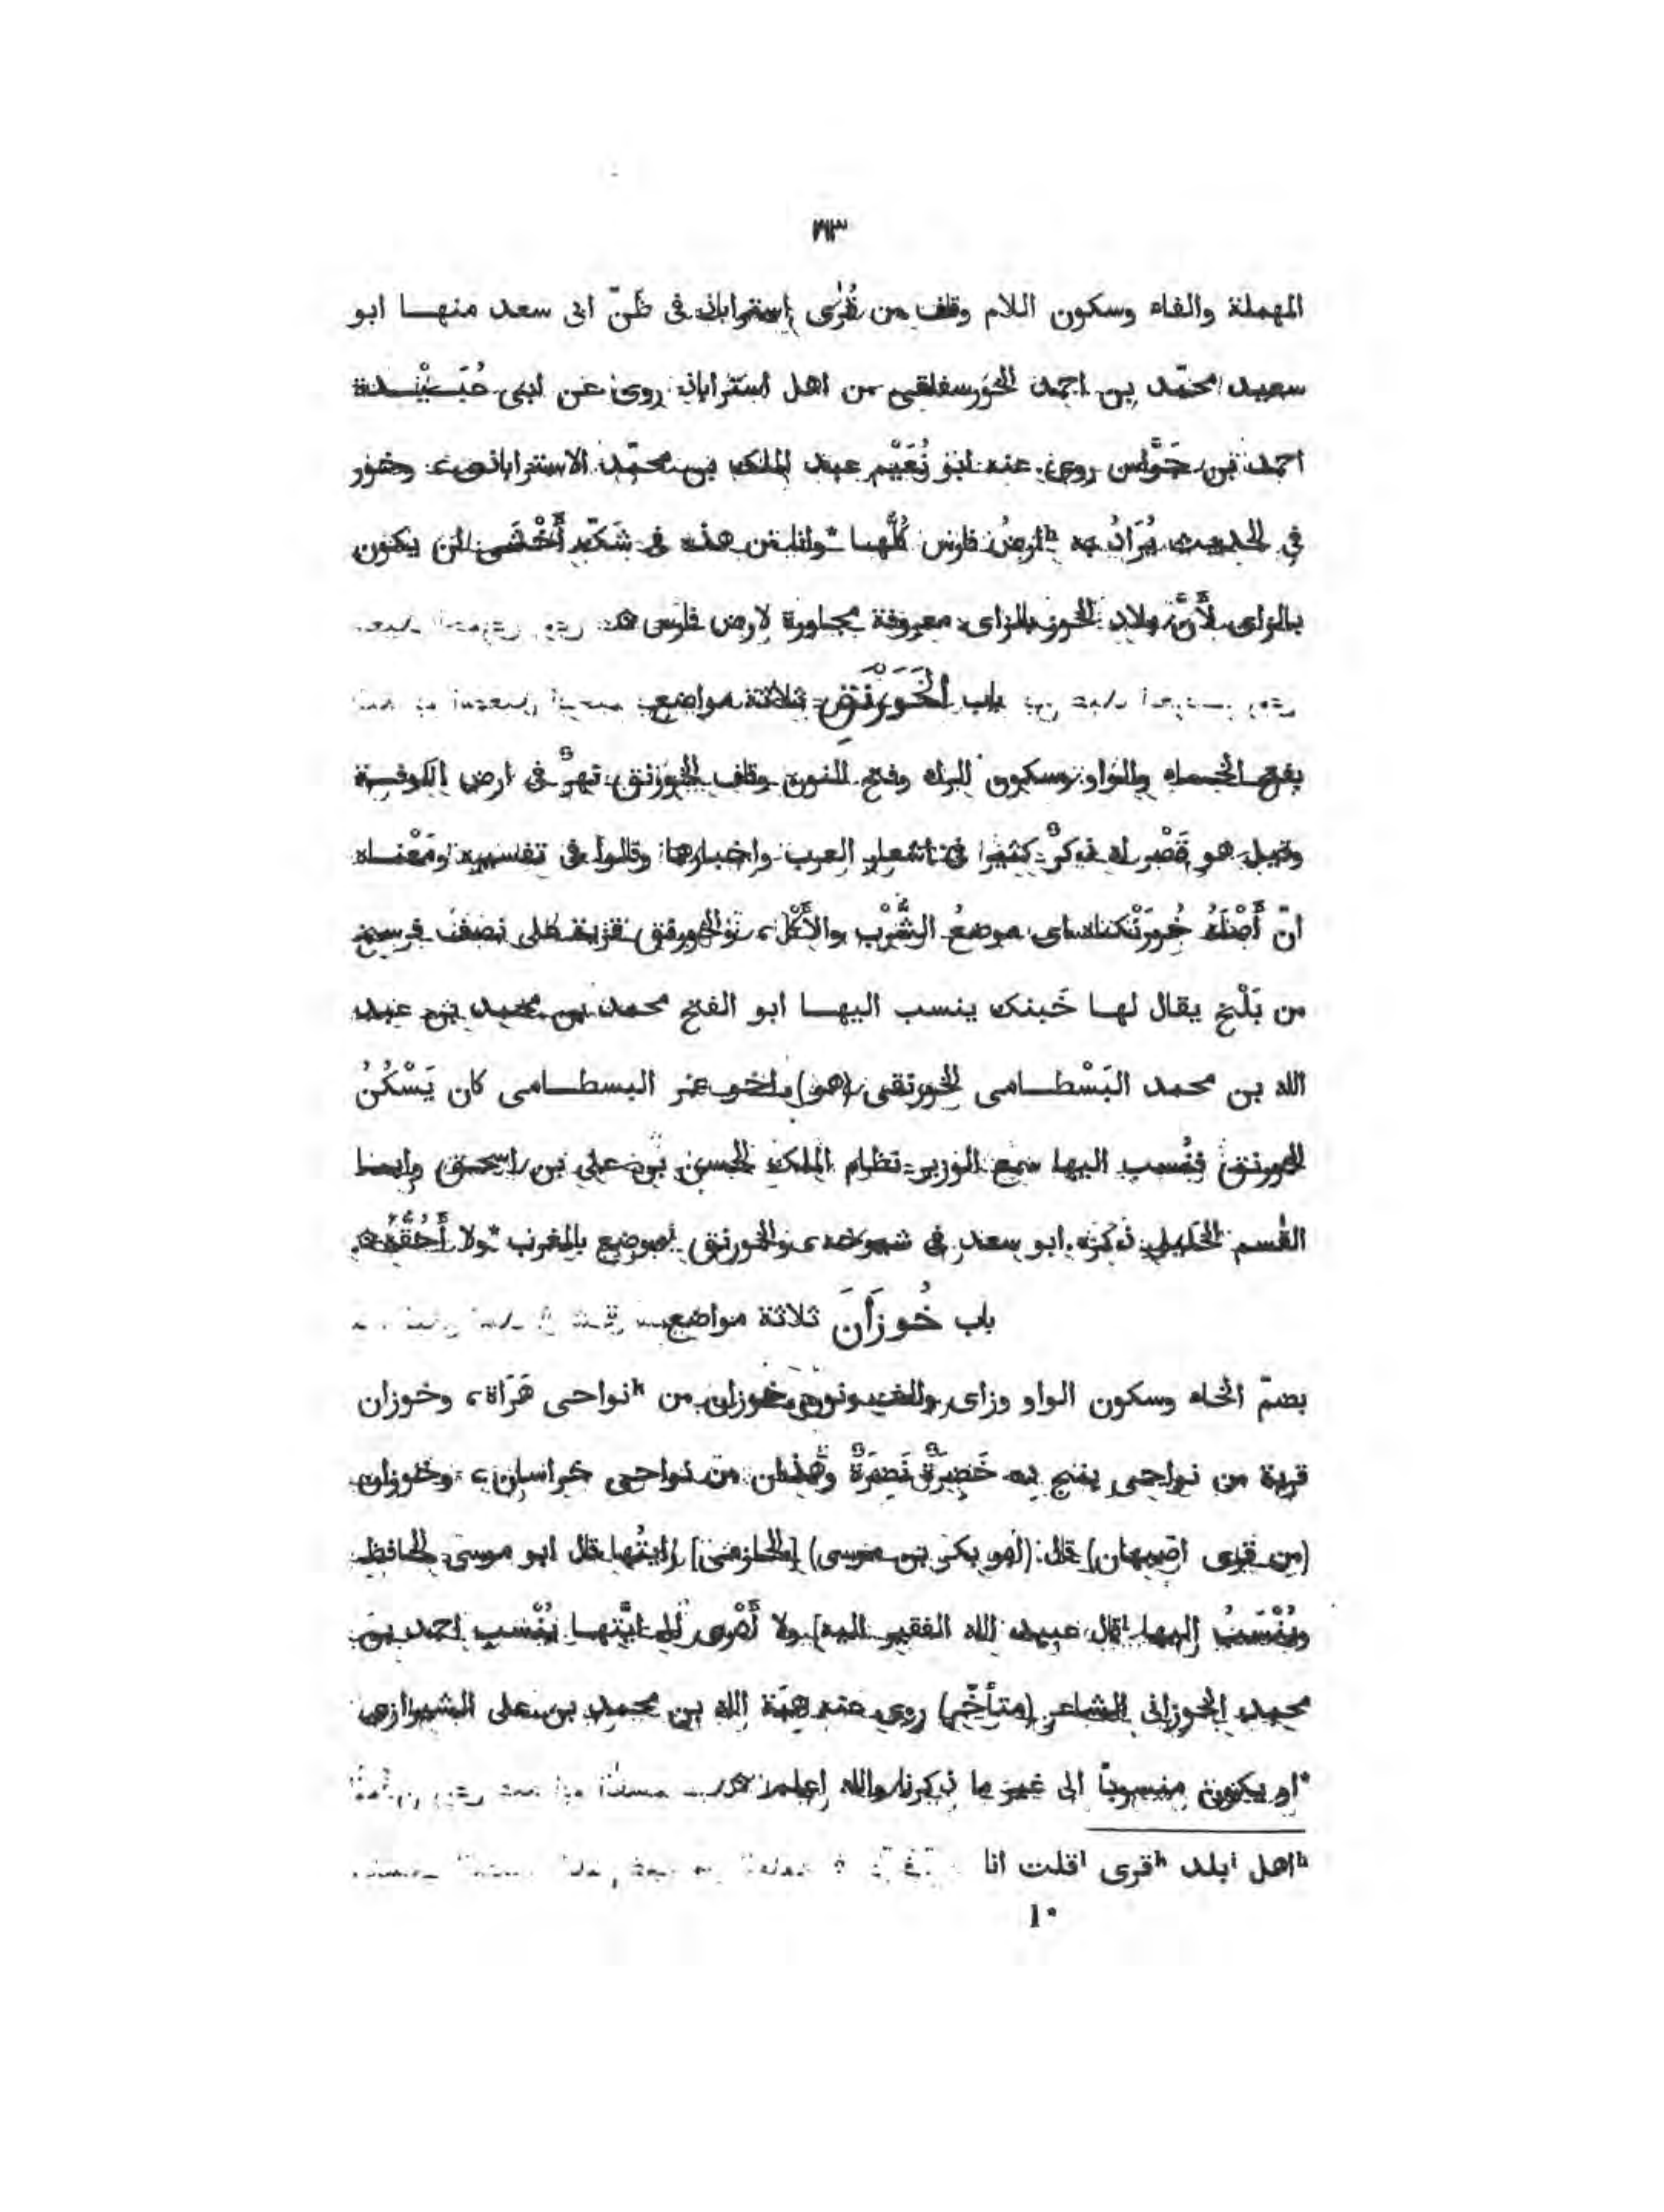 ١٦٣
المهملة والفاء وسكون اللام وقاف من قُرَى استراباذ فى ظَنّ ابى سعد منها ابو
سعيد محمّد بن احمد الخورسفلقى من اهل استراباذ روى عن ابى عُبَيْدة
احمد بن جَوَّاس روى عنه ابو نُعَيْم عبد الملك بن محمّد الاستراباذى، وخور
فى الحديث يُرَادُ به ارضُ فارس كُلُّها *وانا من هذه فى شَكّ أَخْشَى ان يكون
بالزاى لأَنَّ بلاد الخوز بالزاى معروفة مجاورة لارض فارس ۞
باب اَلْخَوَرْنَقِ ثلاثة مواضع
بفتح الخاء والواو وسكون الراء وفتح النون وقاف الخورنق نهرٌ فى ارض الكوفة
وقيل هو قَصْر له ذكرٌ كثير فى اشعار العرب واخبارها وقالوا فى تفسيره ومَعْناه
انّ أَصْلَهُ خُورَنْكَاه اى موضعُ الشُّرْب والأَكْل، والخورنق قرية على نصف فرسخ
من بَلْخ يقال لها خَبنك ينسب اليها ابو الفتح محمد بن محمد بن عبد
الله بن محمد البَسْطامى الخورنقى (هو) اخو عمر البسطامى كان يَسْكُنُ
الخورنق فنُسب اليها سمع الوزير نظام الملك الحسن بن على بن اسحق وابا
القسم الخليلى ذكره ابو سعد فى شيوخه، والخورنق موضع بالمغرب *ولا أَحُقُّهُ ۞
باب خُوزَانَ ثلاثة مواضع
بضمّ الخاء وسكون الواو وزاى والف ونون خوزان من ʰنواحى هَرَاة، وخوزان
قرية من نواحى پنج ده خَضِرَةٌ نَضِرَةٌ وهذان من نواحى خراسان، وخوزان
(من قرى اصبهان) قال (ابو بكر بن موسى) [الحازمى] رايتُها قال ابو موسى الحافظ
ويُنْسَبُ اليها [قال عبيد الله الفقير اليه] ولا أَدْرى الى ايَّتها يُنْسب احمد بن
محمد الخوزانى الشاعر (متأخّر) روى عنه هبة الله بن محمد بن على الشيرازى
*او يكون منسوبًا الى غير ما ذكرنا والله اعلم ۞
اهل ⁱبلد ʰقرى ˡقلت انا
١٠